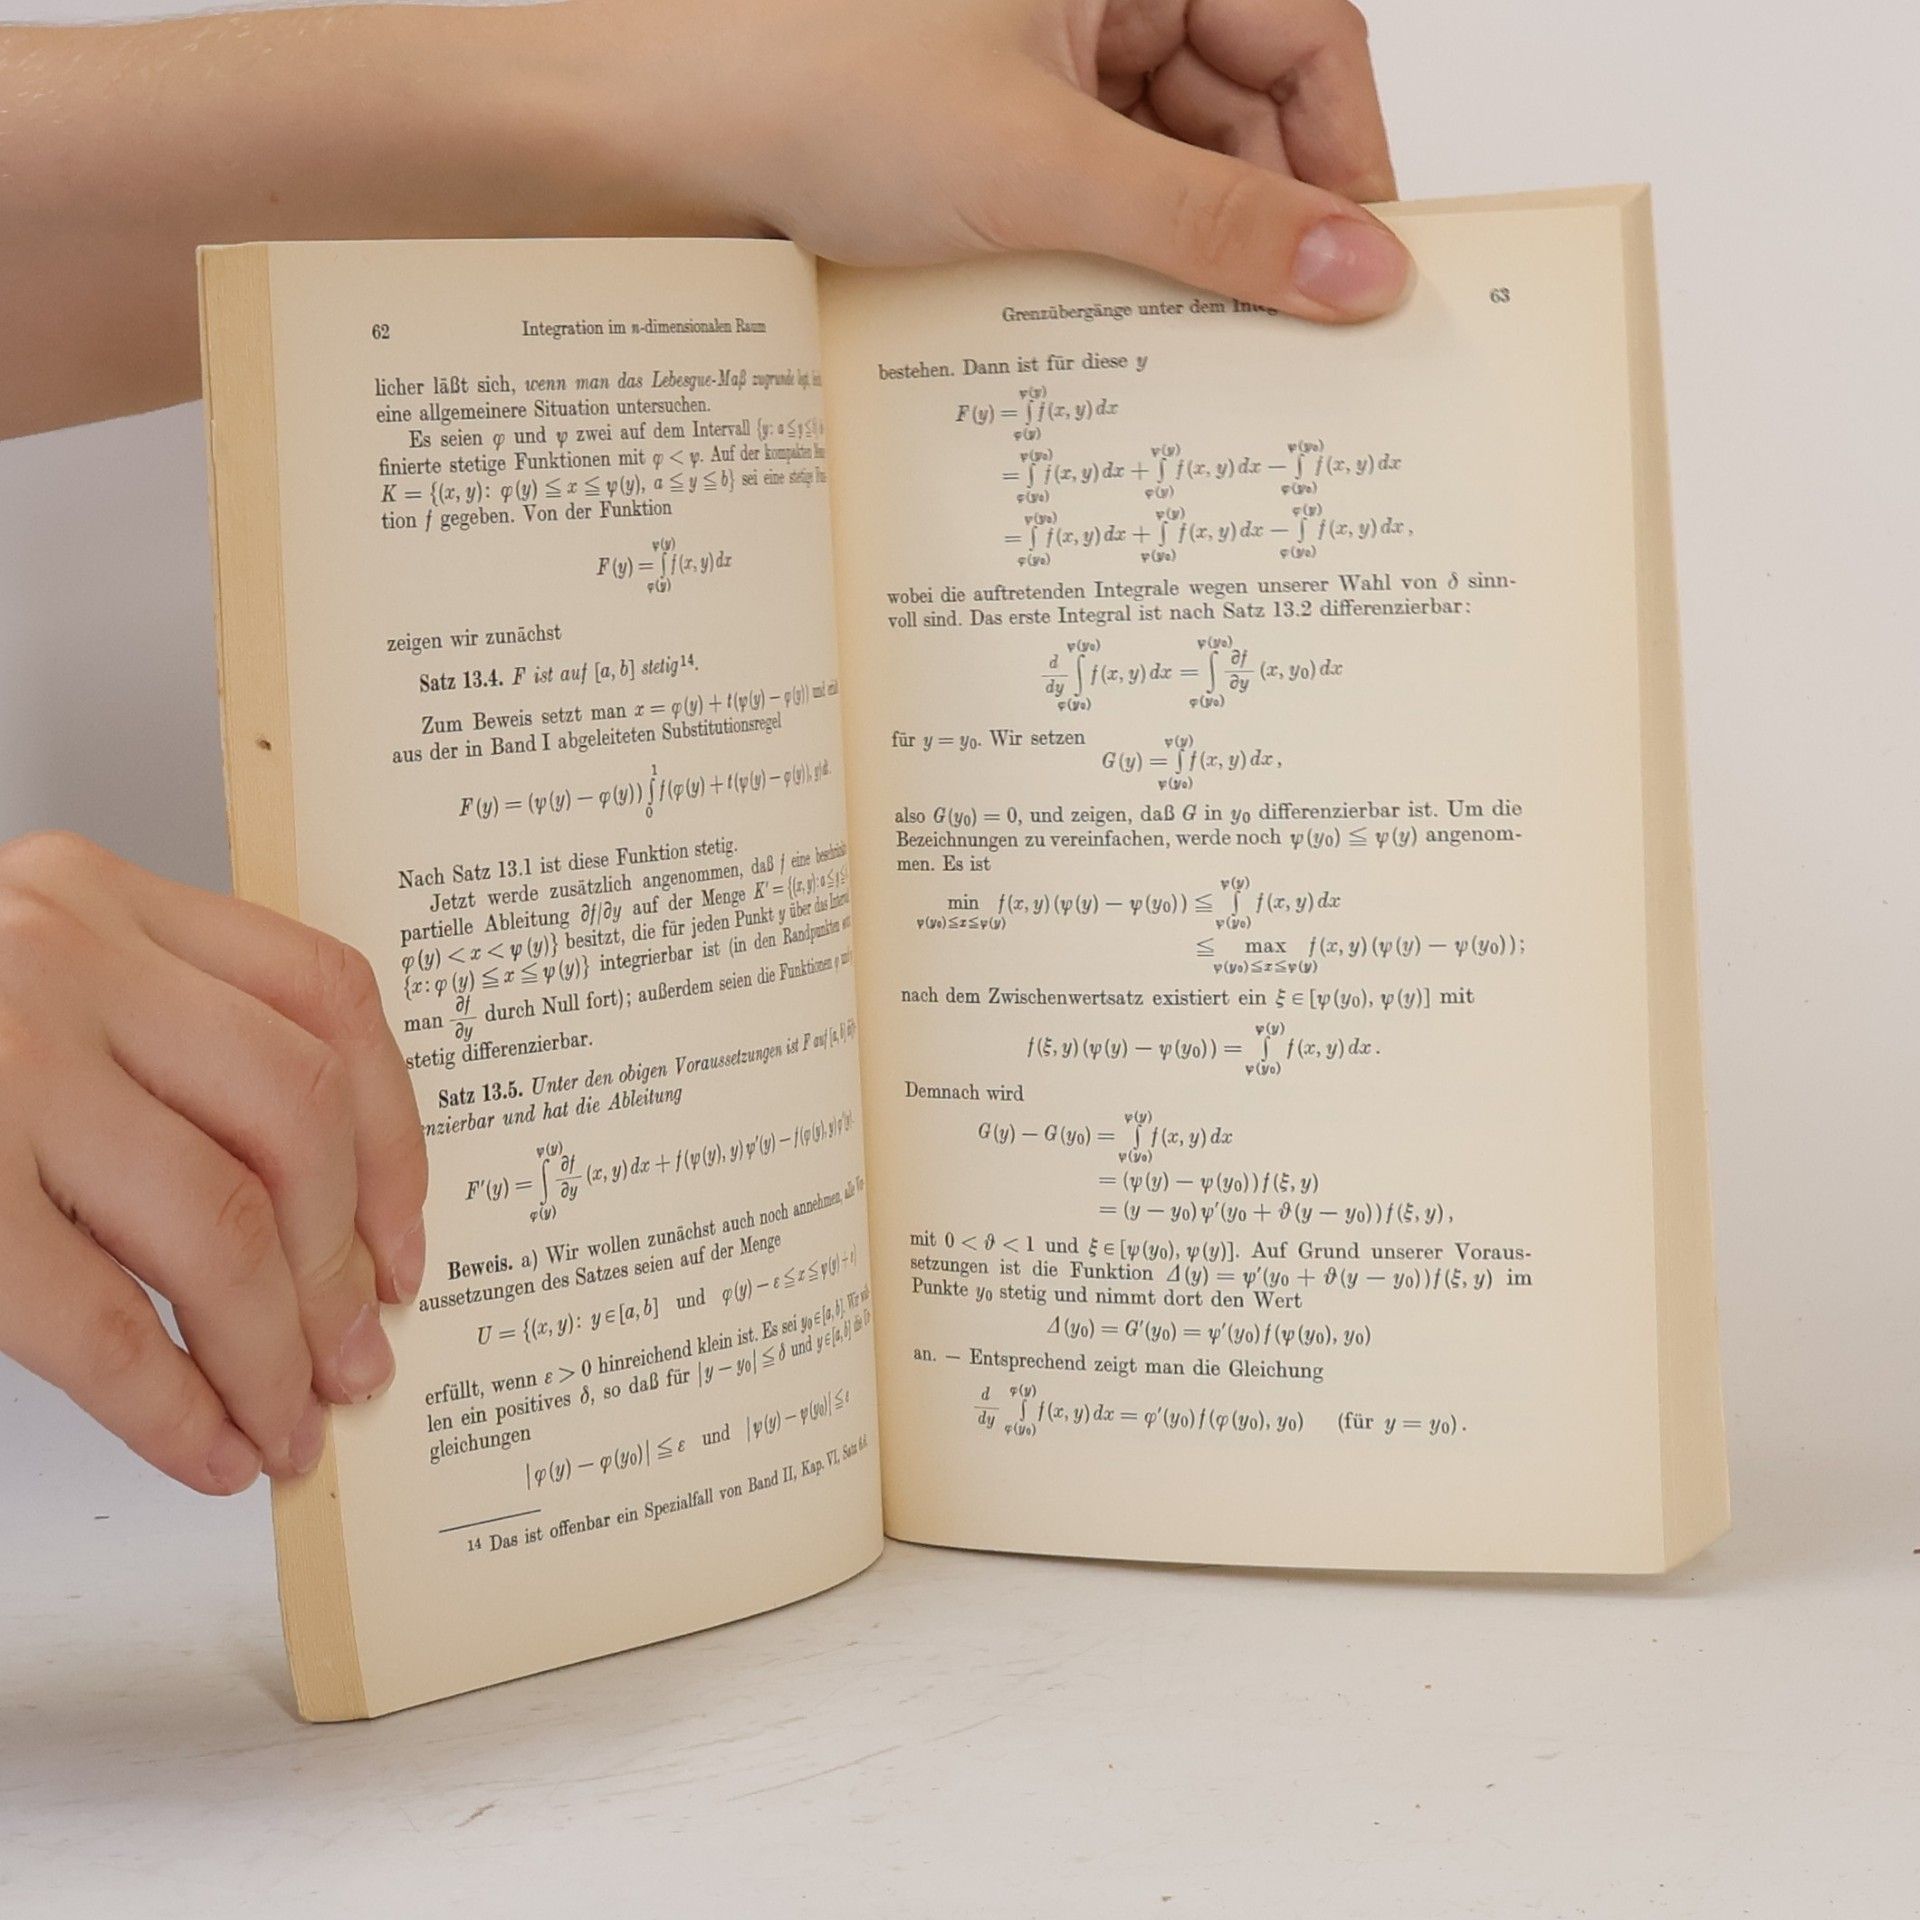 62 Integration im n-dimensionalen Raum
licher läßt sich, wenn man das Lebesgue-Maß zugrunde legt,
eine allgemeinere Situation untersuchen.
Es seien φ und ψ zwei auf dem Intervall {y: a ≦ y ≦
finierte stetige Funktionen mit φ < ψ. Auf der kompakten
K = {(x, y): φ(y) ≦ x ≦ ψ(y), a ≦ y ≦ b} sei eine stetige
tion f gegeben. Von der Funktion
F(y) = ∫_{φ(y)}^{ψ(y)} f(x, y) dx
zeigen wir zunächst
Satz 13.4. F ist auf [a, b] stetig¹⁴.
Zum Beweis setzt man x = φ(y) + t(ψ(y) − φ(y)) und
aus der in Band I abgeleiteten Substitutionsregel
F(y) = (ψ(y) − φ(y)) ∫_0^1 f(φ(y) + t(ψ(y) − φ(y)), y) dt.
Nach Satz 13.1 ist diese Funktion stetig.
Jetzt werde zusätzlich angenommen, daß f eine beschränkte
partielle Ableitung ∂f/∂y auf der Menge K′ = {(x, y): a ≦ y ≦
φ(y) < x < ψ(y)} besitzt, die für jeden Punkt y über das
{x: φ(y) ≦ x ≦ ψ(y)} integrierbar ist (in den Randpunkten
man ∂f/∂y durch Null fort); außerdem seien die Funktionen φ und
stetig differenzierbar.
Satz 13.5. Unter den obigen Voraussetzungen ist F auf [a, b]
nzierbar und hat die Ableitung
F′(y) = ∫_{φ(y)}^{ψ(y)} ∂f/∂y (x, y) dx + f(ψ(y), y) ψ′(y) − f(φ(y), y) φ′(y).
Beweis. a) Wir wollen zunächst auch noch annehmen, alle Vor-
aussetzungen des Satzes seien auf der Menge
U = {(x, y): y ∈ [a, b] und φ(y) − ε ≦ x ≦ ψ(y) + ε}
erfüllt, wenn ε > 0 hinreichend klein ist. Es sei y₀ ∈ [a, b]. Wir
len ein positives δ, so daß für |y − y₀| ≦ δ und y ∈ [a, b] die
gleichungen
|φ(y) − φ(y₀)| ≦ ε und |ψ(y) − ψ(y₀)| ≦ ε
14 Das ist offenbar ein Spezialfall von Band II, Kap. VI, Satz
Grenzübergänge unter dem 63
bestehen. Dann ist für diese y
F(y) = ∫_{φ(y)}^{ψ(y)} f(x, y) dx
= ∫_{φ(y₀)}^{ψ(y₀)} f(x, y) dx + ∫_{φ(y)}^{ψ(y)} f(x, y) dx − ∫_{φ(y₀)}^{ψ(y₀)} f(x, y) dx
= ∫_{φ(y₀)}^{ψ(y₀)} f(x, y) dx + ∫_{ψ(y₀)}^{ψ(y)} f(x, y) dx − ∫_{φ(y₀)}^{φ(y)} f(x, y) dx ,
wobei die auftretenden Integrale wegen unserer Wahl von δ sinn-
voll sind. Das erste Integral ist nach Satz 13.2 differenzierbar:
d/dy ∫_{φ(y₀)}^{ψ(y₀)} f(x, y) dx = ∫_{φ(y₀)}^{ψ(y₀)} ∂f/∂y (x, y₀) dx
für y = y₀. Wir setzen
G(y) = ∫_{ψ(y₀)}^{ψ(y)} f(x, y) dx ,
also G(y₀) = 0, und zeigen, daß G in y₀ differenzierbar ist. Um die
Bezeichnungen zu vereinfachen, werde noch ψ(y₀) ≦ ψ(y) angenom-
men. Es ist
min_{ψ(y₀)≦x≦ψ(y)} f(x, y) (ψ(y) − ψ(y₀)) ≦ ∫_{ψ(y₀)}^{ψ(y)} f(x, y) dx
≦ max_{ψ(y₀)≦x≦ψ(y)} f(x, y) (ψ(y) − ψ(y₀));
nach dem Zwischenwertsatz existiert ein ξ ∈ [ψ(y₀), ψ(y)] mit
f(ξ, y) (ψ(y) − ψ(y₀)) = ∫_{ψ(y₀)}^{ψ(y)} f(x, y) dx .
Demnach wird
G(y) − G(y₀) = ∫_{ψ(y₀)}^{ψ(y)} f(x, y) dx
= (ψ(y) − ψ(y₀)) f(ξ, y)
= (y − y₀) ψ′(y₀ + ϑ(y − y₀)) f(ξ, y) ,
mit 0 < ϑ < 1 und ξ ∈ [ψ(y₀), ψ(y)]. Auf Grund unserer Voraus-
setzungen ist die Funktion Δ(y) = ψ′(y₀ + ϑ(y − y₀)) f(ξ, y) im
Punkte y₀ stetig und nimmt dort den Wert
Δ(y₀) = G′(y₀) = ψ′(y₀) f(ψ(y₀), y₀)
an. — Entsprechend zeigt man die Gleichung
d/dy ∫_{φ(y₀)}^{φ(y)} f(x, y) dx = φ′(y₀) f(φ(y₀), y₀) (für y = y₀) .